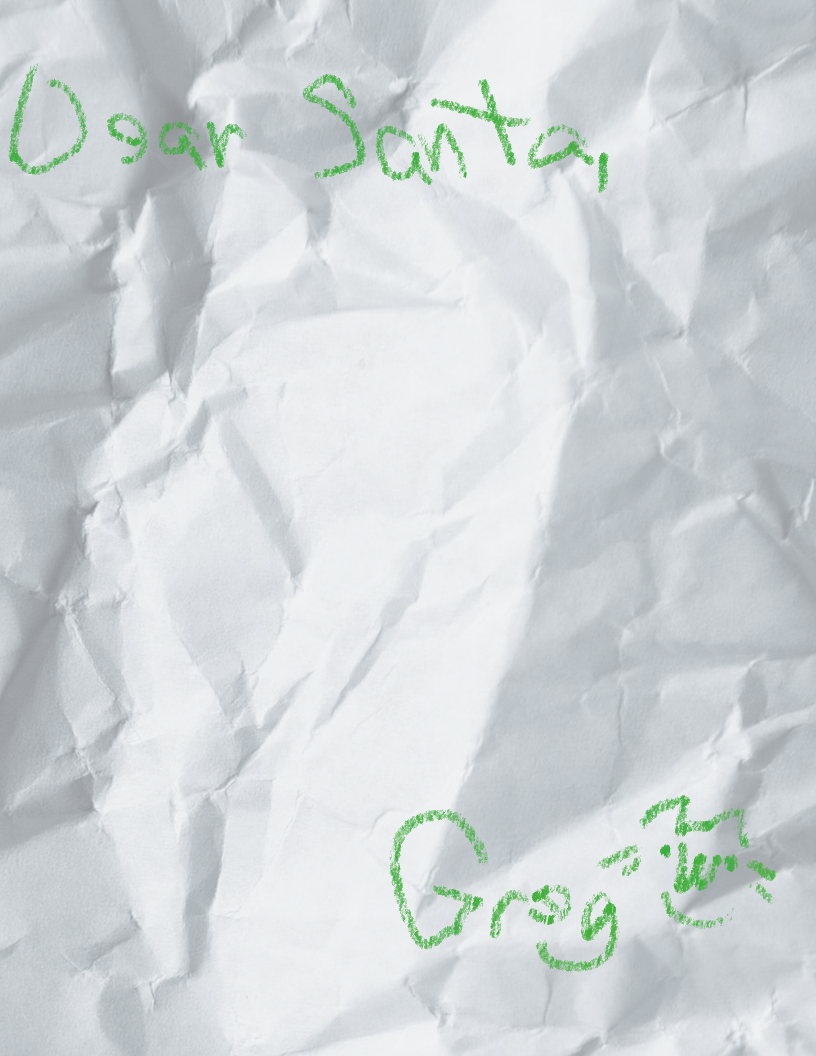 Dear Santa,
Greg